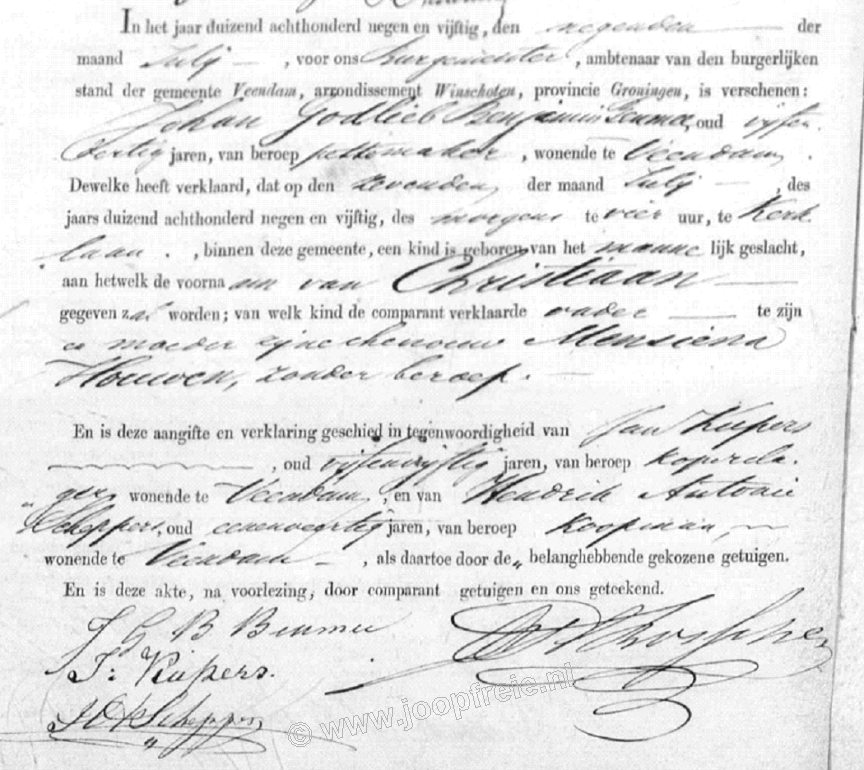 In het jaar duizend achthonderd negen en vijftig, den negenden der
maand Julij, voor ons Burgemeester, ambtenaar van den burgerlijken
stand der gemeente Veendam, arrondissement Winschoten, provincie Groningen, is verschenen:
Johan Godlieb Benjamin Beumee, oud vijfen
dertig jaren, van beroep pettemaker, wonende te Veendam.
Dewelke heeft verklaard, dat op den zevenden der maand Julij, des
jaars duizend achthonderd negen en vijftig, des morgens te vier uur, te Kerk
laan, binnen deze gemeente, een kind is geboren van het mannelijk geslacht,
aan hetwelk de voornaam van Christiaan
gegeven zal worden; van welk kind de comparant verklaarde vader te zijn
en moeder zijne ehevrouw Mensiena
Houwen, zonder beroep.
En is deze aangifte en verklaring geschied in tegenwoordigheid van Jan Kuipers
, oud vijfenvijftig jaren, van beroep koperslager
wonende te Veendam, en van Hendrik Antonie
Scheppers, oud eenenveertig jaren, van beroep koopman,
wonende te Veendam, als daartoe door de belanghebbende gekozene getuigen.
En is deze akte, na voorlezing, door comparant getuigen en ons geteekend.
J G B Beumee
J: Kuipers.
Scheppers
© www.joopfreie.nl